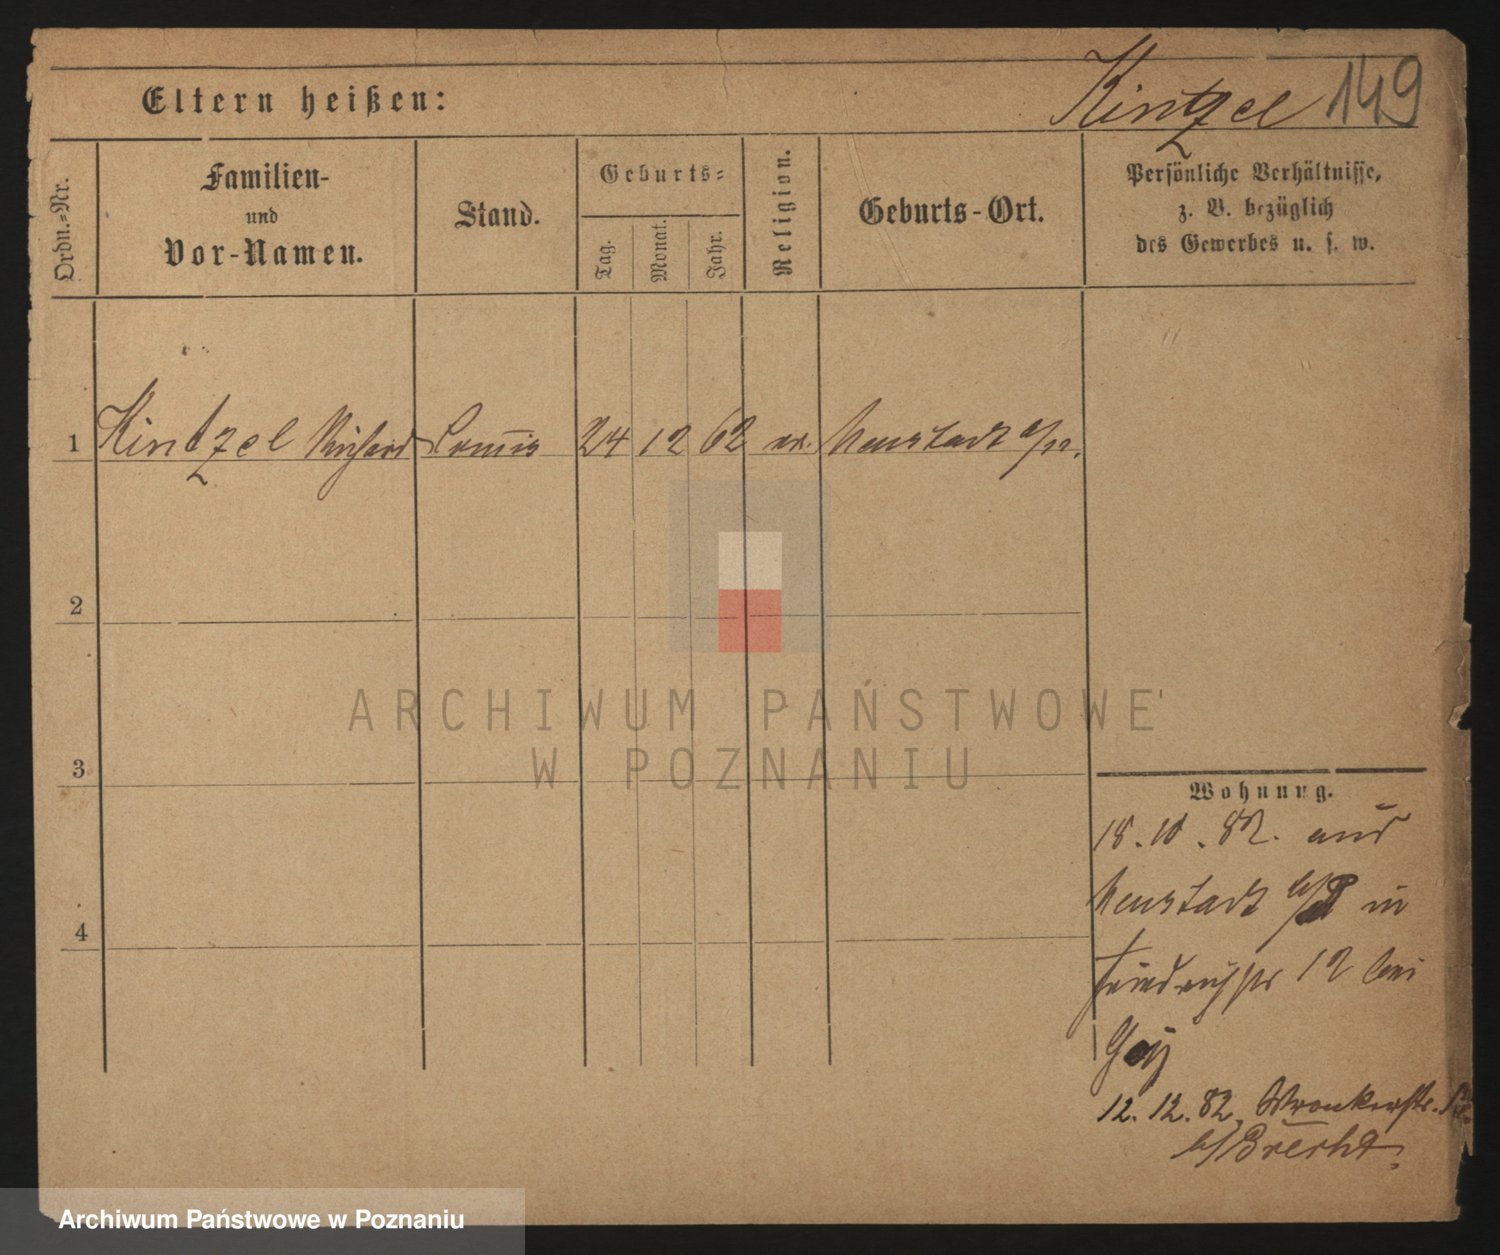 Kintzel 149
Eltern heißen:
Ordn.=Nr.
Familien-
und
Vor-Namen.
Stand.
Geburts=
Tag.
Monat.
Jahr.
Religion.
Geburts-Ort.
Persönliche Verhältnisse,
z. B. bezüglich
des Gewerbes u. s. w.
1 Kintzel Richard Commis 24 12 62 ev. Neustadt
2
3
4
Wohnung.
18. 10. 82. aus
Neustadt b/P in
Friedrichstr 12 bei
12. 12. 82. Wronkerstr.
b/Brecht.
ARCHIWUM PAŃSTWOWE
W POZNANIU
Archiwum Państwowe w Poznaniu